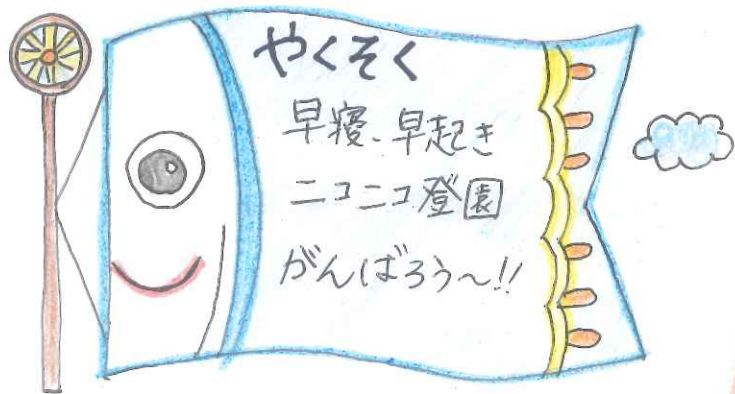 やくそく
早寝、早起き
ニコニコ登園
がんばろう～!!